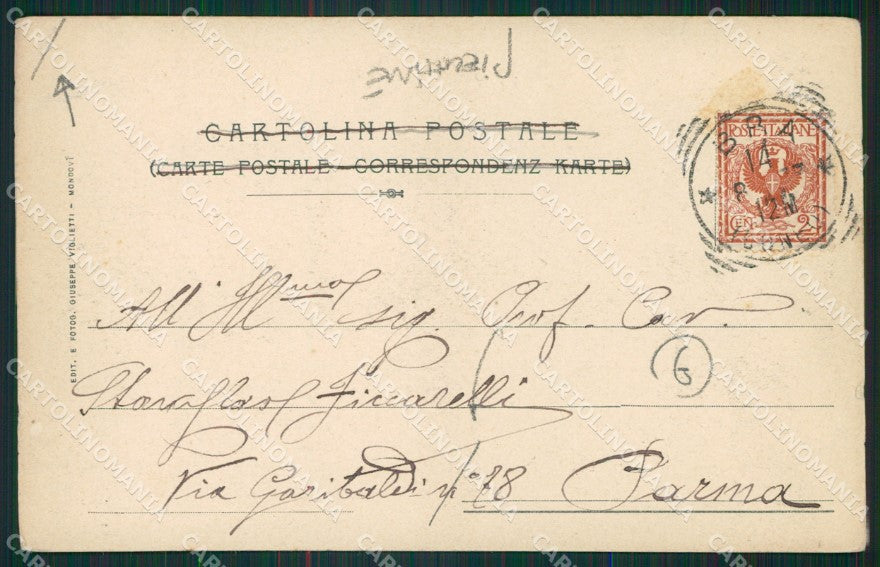 PIEMONTE
CARTOLINA POSTALE
(CARTE POSTALE - CORRESPONDENZ KARTE)
EDIT. E FOTOG. GIUSEPPE VIGLIETTI - MONDOVÌ
POSTE ITALIANE
BRA
14
8
12 M
(CUNEO)
All' Ill.mo sig. Prof. Cav.
6
Ficcarelli
Via Garibaldi n° 28 Parma
CARTOLINOMANIA